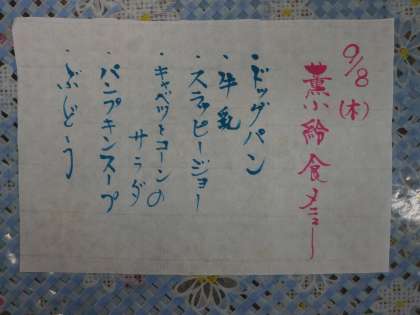 9/8(木)
薫小給食メニュー
・ドッグパン
・牛乳
・スラッピージョー
・キャベツとコーンの
サラダ
・パンプキンスープ
・ぶどう